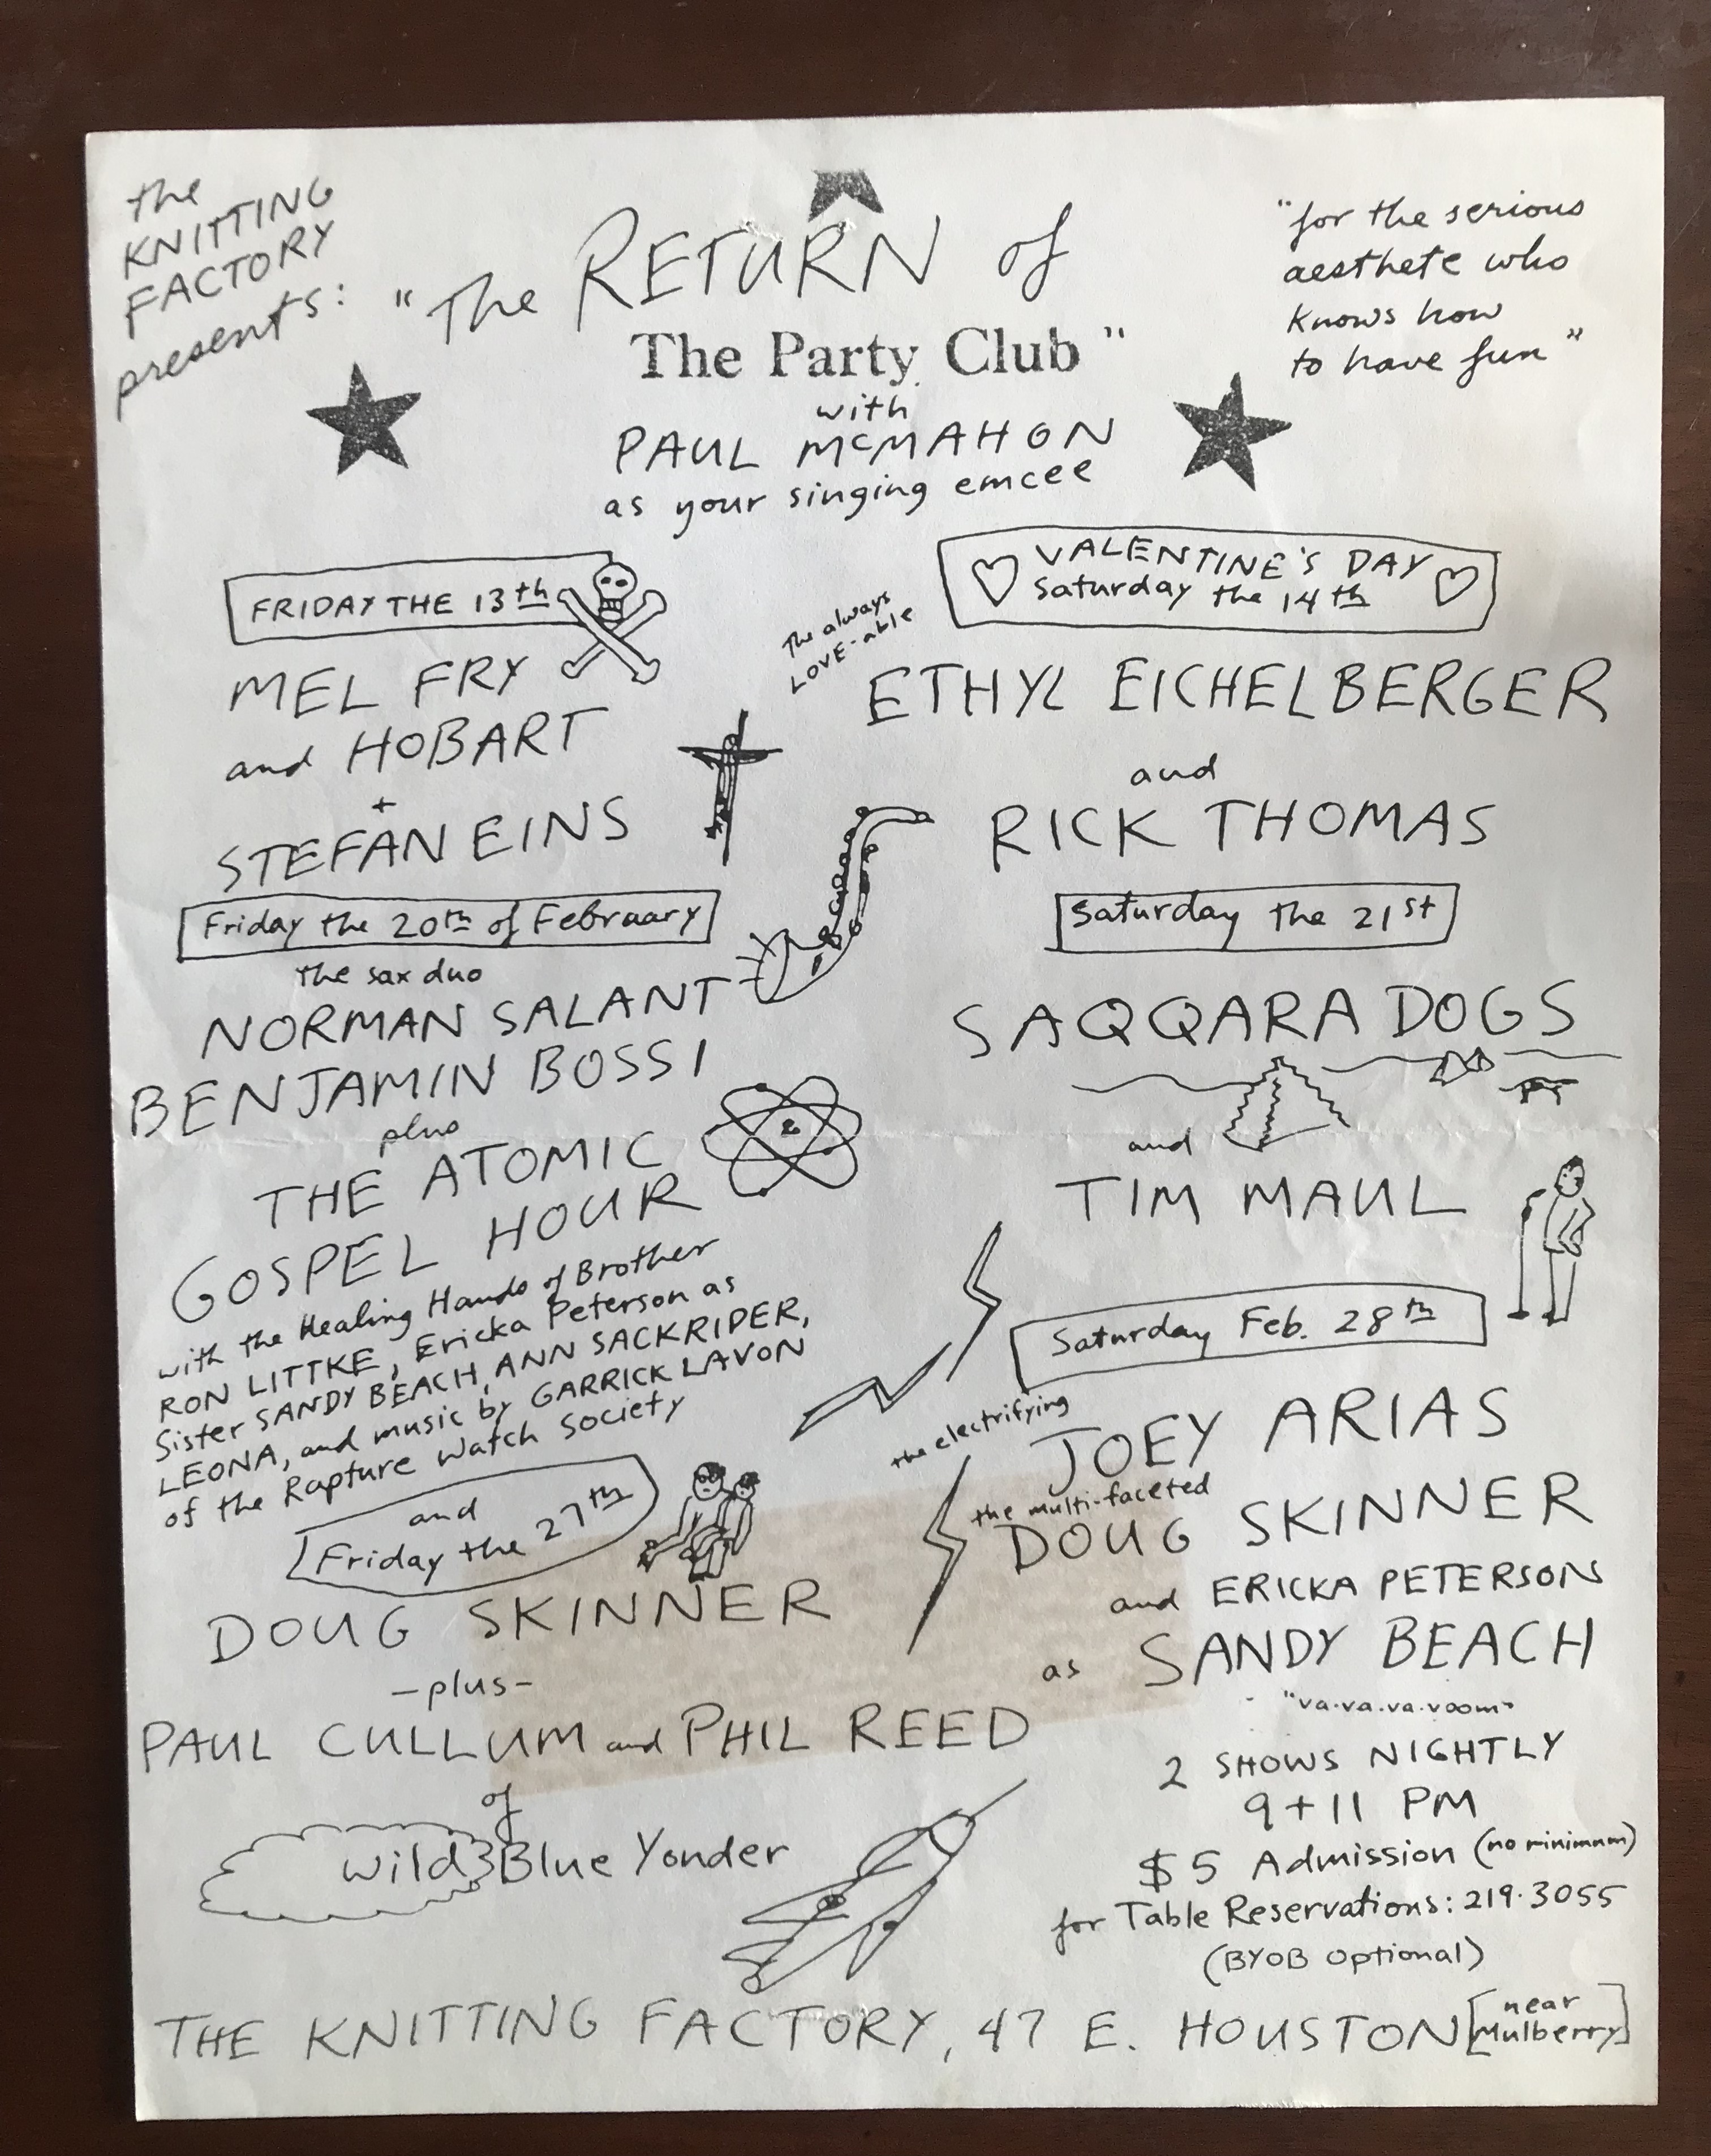 the
KNITTING
FACTORY
presents:
"The RETURN of
The Party Club"
"for the serious
aesthete who
knows how
to have fun"
with
PAUL McMAHON
as your singing emcee
FRIDAY THE 13th
MEL FRY
and HOBART
+
STEFAN EINS
VALENTINE'S DAY
Saturday the 14th
The always
LOVE-able
ETHYL EICHELBERGER
and
RICK THOMAS
Friday the 20th of February
the sax duo
NORMAN SALANT
BENJAMIN BOSSI
plus
THE ATOMIC
GOSPEL HOUR
with the Healing Hands of Brother
RON LITTKE, Ericka Peterson as
Sister SANDY BEACH, ANN SACKRIDER,
LEONA, and music by GARRICK LAVON
of the Rapture Watch Society
Saturday the 21st
SAQQARA DOGS
and
TIM MAUL
and
Friday the 27th
DOUG SKINNER
-plus-
PAUL CULLUM and PHIL REED
of
Wild Blue Yonder
Saturday Feb. 28th
the electrifying
JOEY ARIAS
the multi-faceted
DOUG SKINNER
and ERICKA PETERSON
as SANDY BEACH
"va-va-va-voom"
2 SHOWS NIGHTLY
9+11 PM
$5 Admission (no minimum)
for Table Reservations: 219-3055
(BYOB optional)
THE KNITTING FACTORY, 47 E. HOUSTON [near
Mulberry]